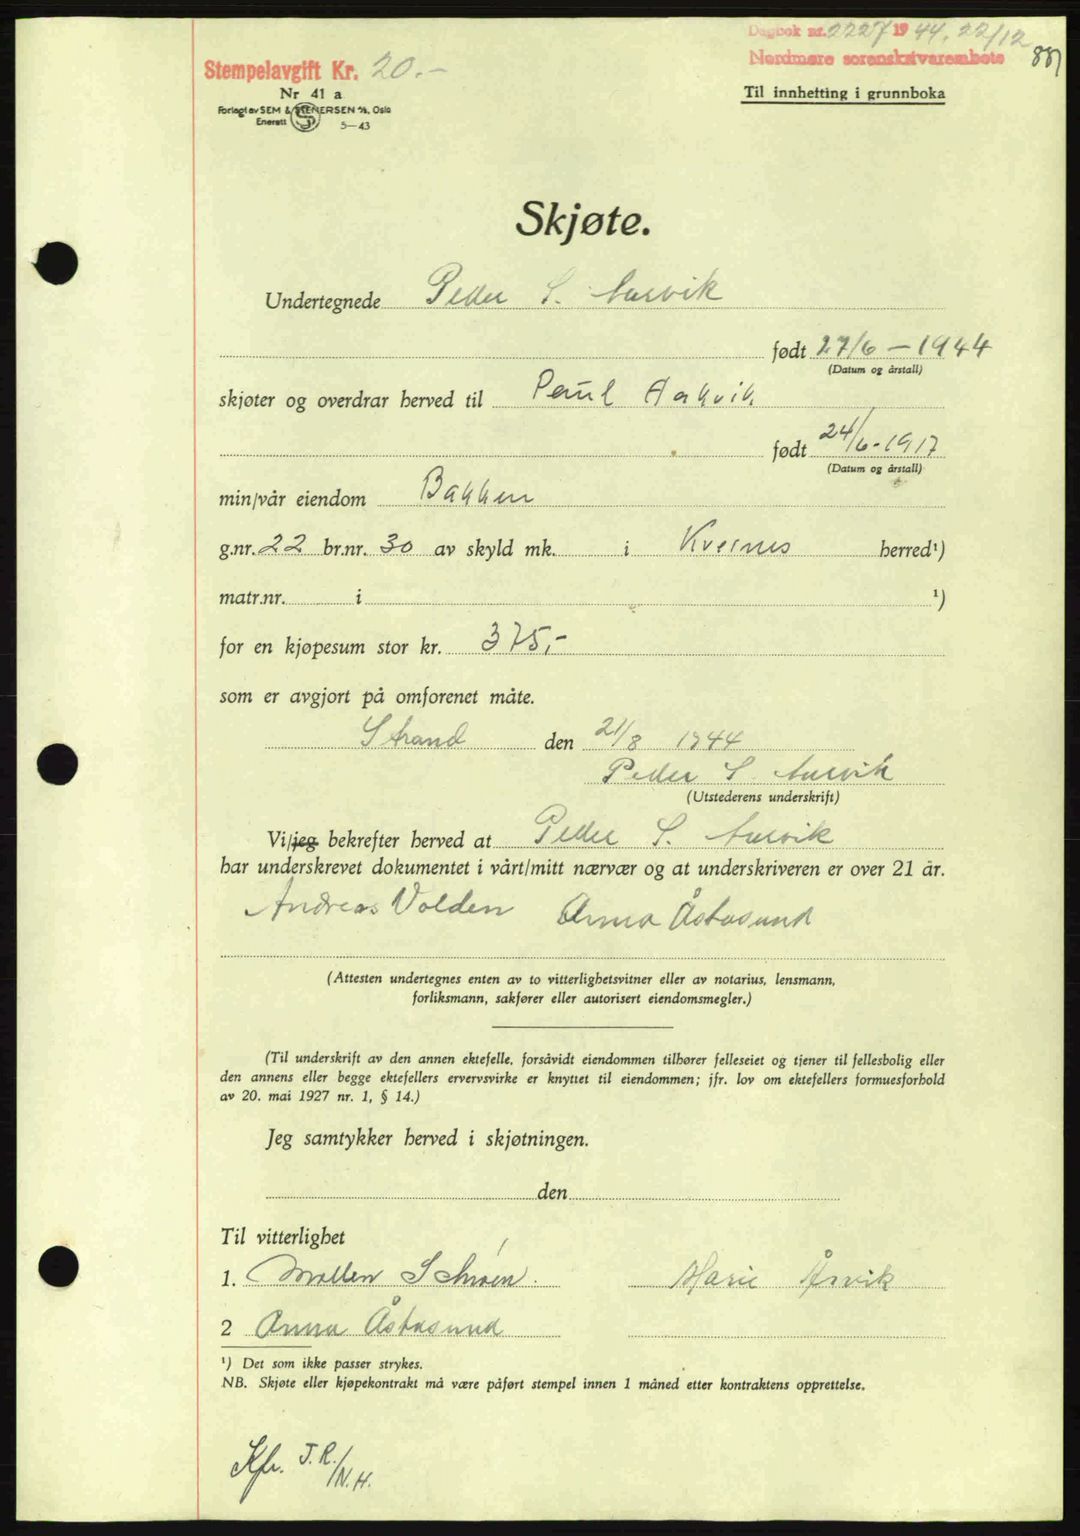 Dagbok nr. 2227 1944, 22/12
Stempelavgift Kr. 20.-
Nordmøre sorenskriverembete
887
Nr 41 a
Til innhefting i grunnboka
Forlagt av SEM & STENERSEN A/S, Oslo
Enerett 5—43
Skjøte.
Undertegnede Peder S. Aarvik
født 27/6 — 1944
(Datum og årstall)
skjøter og overdrar herved til Paul Aakvik
født 24/6-1917
(Datum og årstall)
min/vår eiendom Bakken
g.nr. 22 br.nr. 30 av skyld mk. i Kvernes herred¹)
matr.nr. i ¹)
for en kjøpesum stor kr. 375,-
som er avgjort på omforenet måte.
Strand den 21/8 1944
Peder S. Aarvik
(Utstederens underskrift)
Vi/jeg bekrefter herved at Peder S. Aarvik
har underskrevet dokumentet i vårt/mitt nærvær og at underskriveren er over 21 år.
Andreas Volden Anna Åstasund
(Attesten undertegnes enten av to vitterlighetsvitner eller av notarius, lensmann,
forliksmann, sakfører eller autorisert eiendomsmegler.)
(Til underskrift av den annen ektefelle, forsåvidt eiendommen tilhører felleseiet og tjener til fellesbolig eller
den annens eller begge ektefellers ervervsvirke er knyttet til eiendommen; jfr. lov om ektefellers formuesforhold
av 20. mai 1927 nr. 1, § 14.)
Jeg samtykker herved i skjøtningen.
den
Til vitterlighet
1. Marie Årvik
2 Anna Åstasund
¹) Det som ikke passer strykes.
NB. Skjøte eller kjøpekontrakt må være påført stempel innen 1 måned etter kontraktens opprettelse.
Kfr. J.R./N.H.